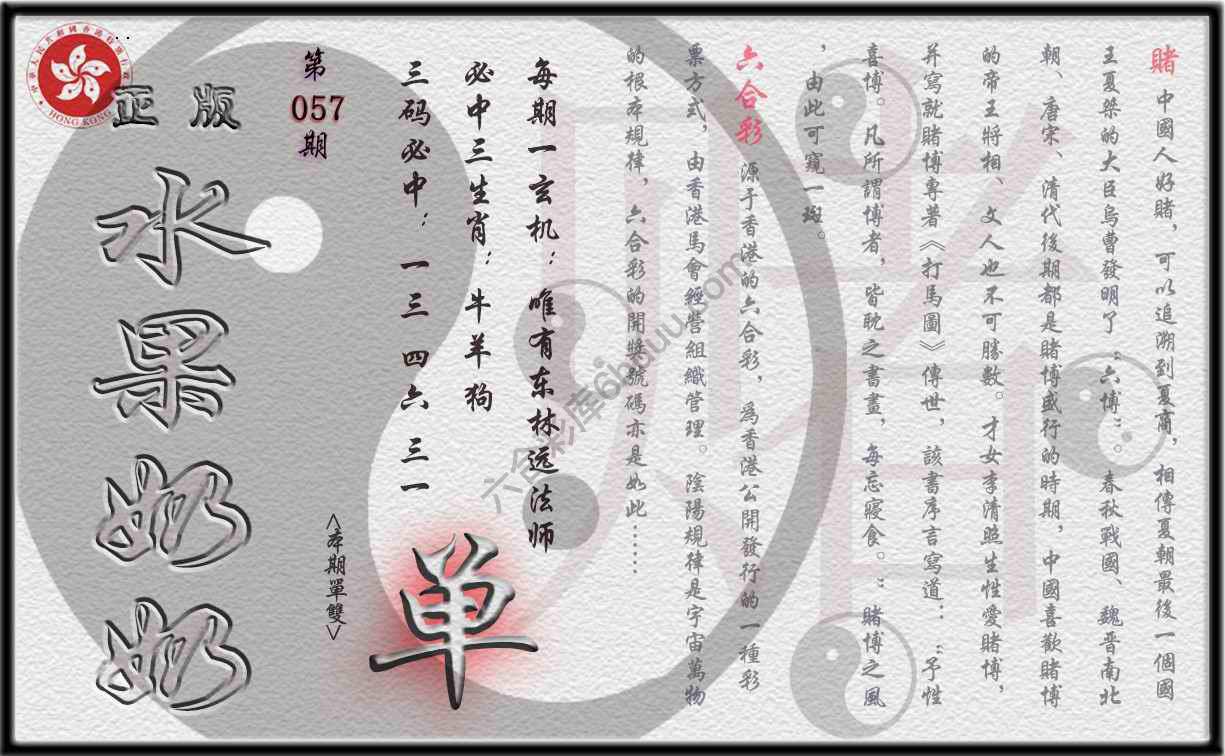 賭 中國人好賭，可以追溯到夏商，相傳夏朝最後一個國
王夏桀的大臣烏曹發明了“六博”。春秋戰國、魏晋南北
朝、唐宋、清代後期都是賭博盛行的時期，中國喜歡賭博
的帝王將相、文人也不可勝數。才女李清照生性愛賭博，
并寫就賭博專著《打馬圖》傳世，該書序言寫道：“予性
喜博。凡所謂博者，皆耽之書畫，每忘寢食。”賭博之風
，由此可窺一斑。
六合彩 源于香港的六合彩，為香港公開發行的一種彩
票方式，由香港馬會經營組織管理。陰陽規律是宇宙萬物
的根本規律，六合彩的開獎號碼亦是如此……
每期一玄机：唯有东林远法师
必中三生肖：牛羊狗
三码必中：一三 四六 三一
第
057
期
<本期單雙>
单
正版
水果奶奶
HONG KONG
六合彩库6hduu.com
賭